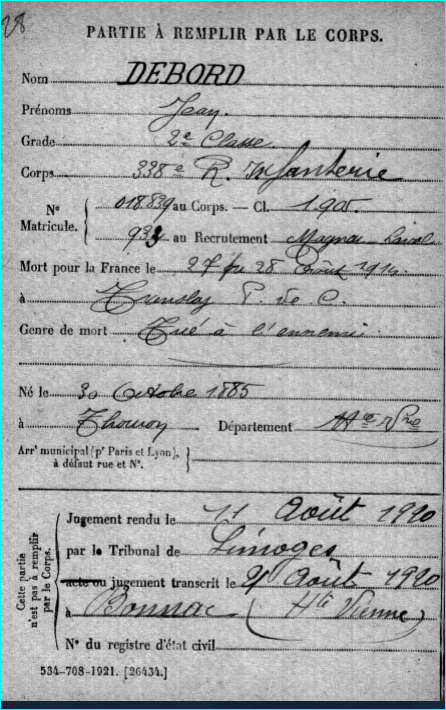 28
PARTIE À REMPLIR PAR LE CORPS.
Nom DEBORD
Prénoms Jean.
Grade 2e Classe
Corps 338e R. Infanterie
Nº Matricule. { 018.839 au Corps. — Cl. 1905.
au Recrutement Magnac-Laval
Mort pour la France le 27 ou 28 Août 1914
à P. de C.
Genre de mort Tué à l'ennemi.
Né le 30 Octobre 1885
à Thouron Département Hte Vne
Arrt municipal (pr Paris et Lyon), à défaut rue et Nº.
Cette partie n'est pas à remplir par le Corps.
Jugement rendu le 11 Août 1920
par le Tribunal de Limoges
acte ou jugement transcrit le 21 Août 1920
à Bonnac (Hte Vienne)
Nº du registre d'état civil
534-708-1921. [26434.]